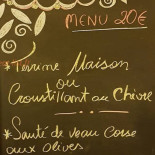 MENU 20€
*Terrine Maison
ou
Croustillant au Chèvre
*Sauté de veau Corse
aux olives